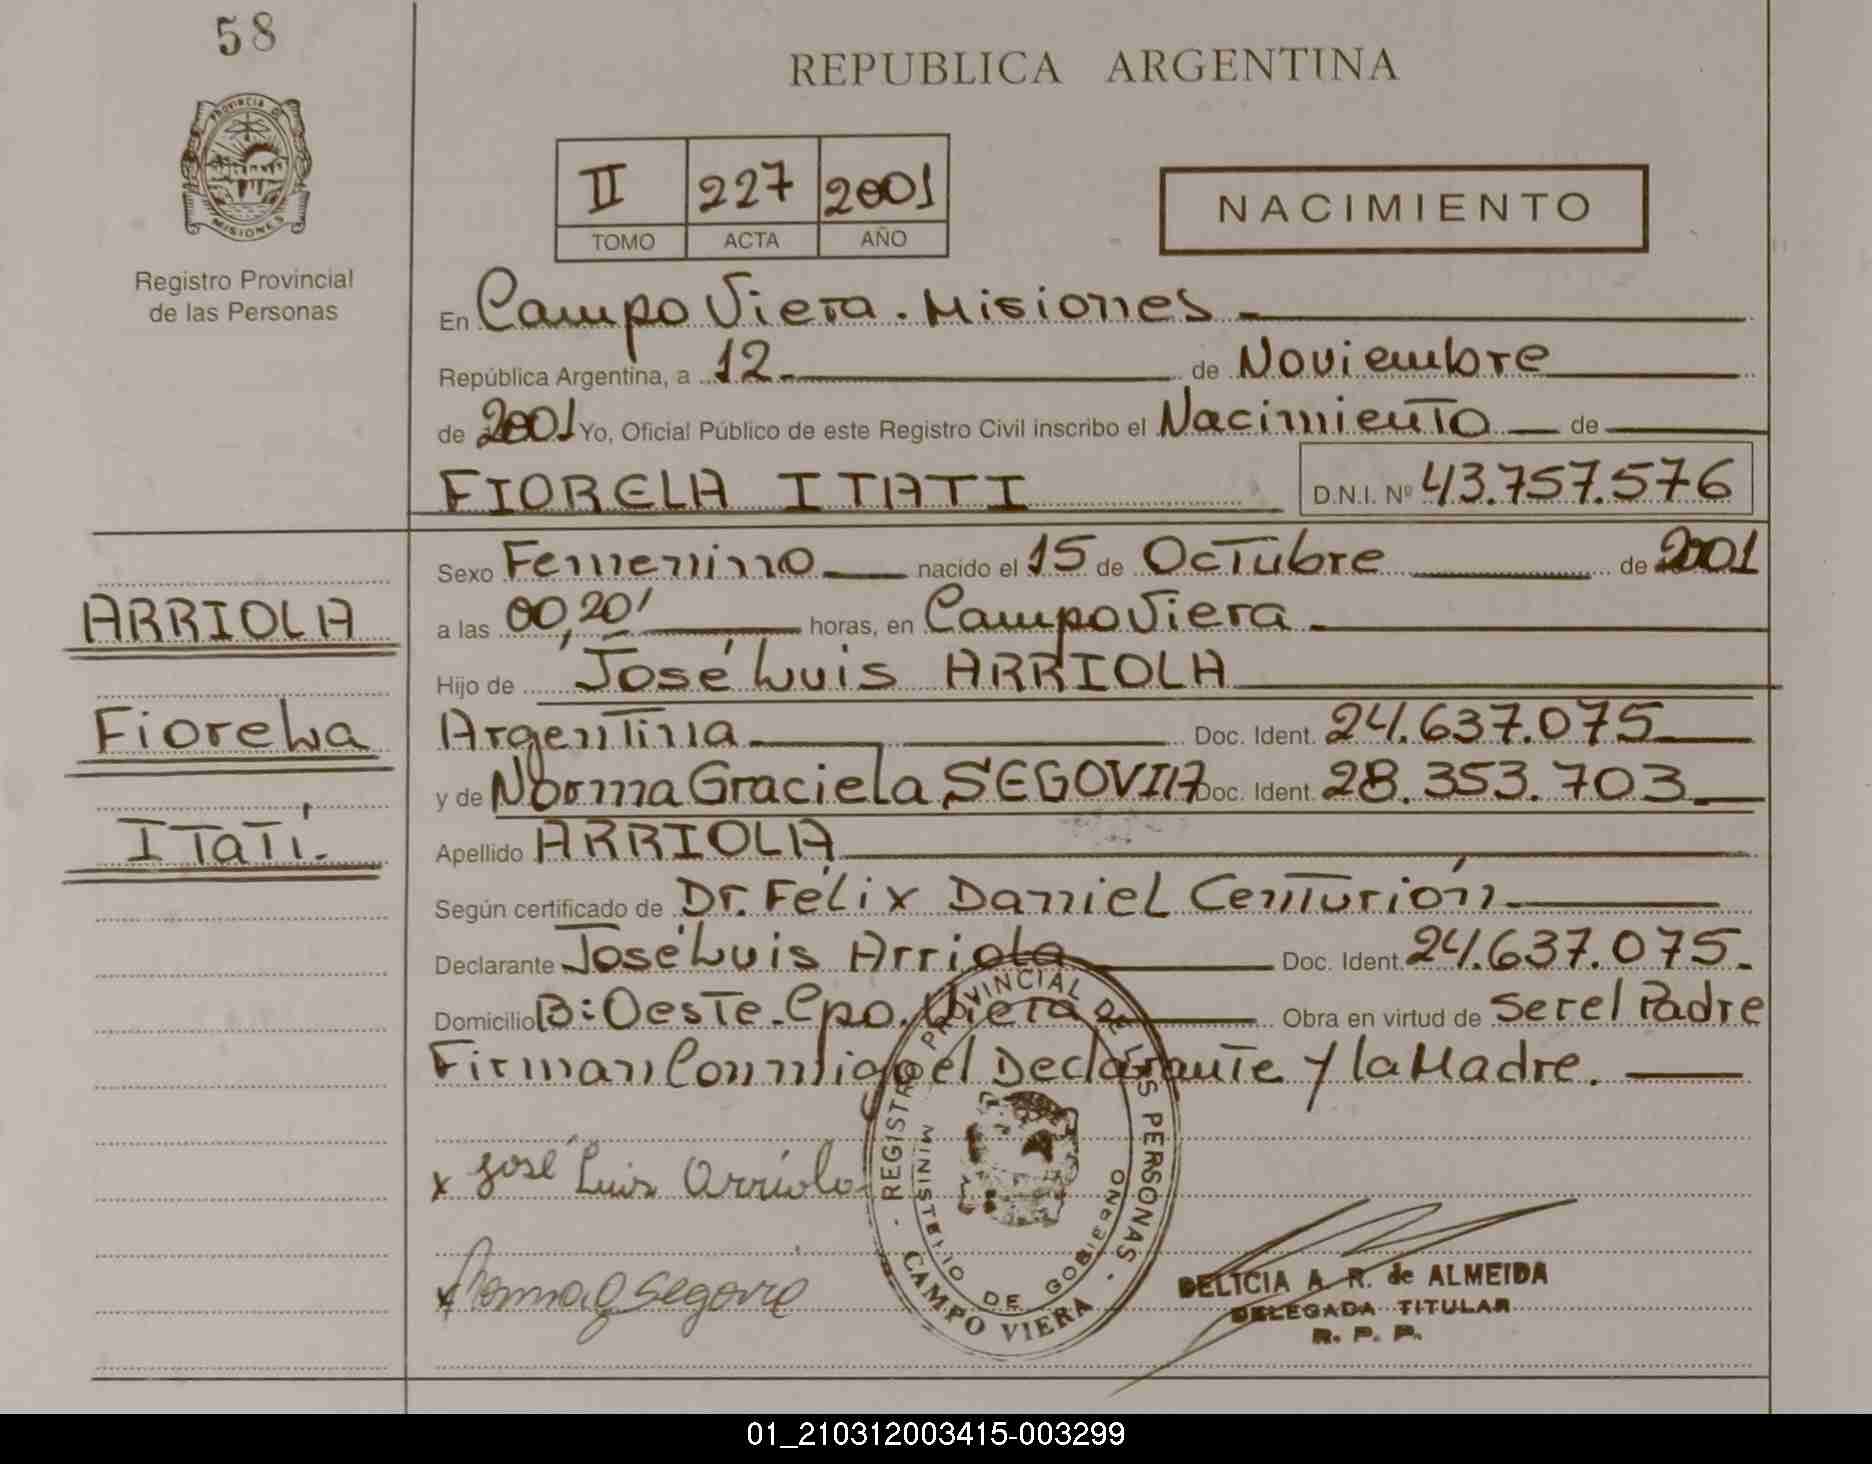 58
REPUBLICA ARGENTINA
PROVINCIA DE MISIONES
Registro Provincial
de las Personas
II 227 2001
TOMO ACTA AÑO
NACIMIENTO
En Campo Viera. Misiones
República Argentina, a 12 de Noviembre
de 2001 Yo, Oficial Público de este Registro Civil inscribo el Nacimiento de
FIORELA ITATI D.N.I. Nº 43.757.576
Sexo Femenino nacido el 15 de Octubre de 2001
ARRIOLA
a las 00,20' horas, en Campo Viera
Hijo de José Luis ARRIOLA
Fiorela
Argentina Doc. Ident. 24.637.075
y de Norma Graciela SEGOVIA Doc. Ident. 28.353.703
Itatí.
Apellido ARRIOLA
Según certificado de Dr. Félix Daniel Centurión
Declarante José Luis Arriola Doc. Ident. 24.637.075.
Domicilio B: Oeste. Cpo. Viera Obra en virtud de Ser el Padre
Firman Conmigo el Declarante y la Madre.
x José Luis Arriola
x Norma G Segovia
REGISTRO PROVINCIAL DE LAS PERSONAS
MINISTERIO DE GOBIERNO
CAMPO VIERA
DELICIA A. R. de ALMEIDA
DELEGADA TITULAR
R. P. P.
01_210312003415-003299